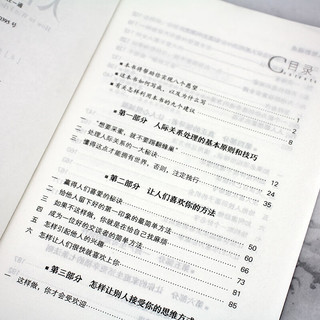 目录
本书将帮助你实现八个愿望 1
这本书如何写成,以及为什么写 2
有关怎样利用本书的九个建议 8
第一部分 人际关系处理的基本原则和技巧
一 “想要采蜜,就不要踢翻蜂巢” 12
二 处理人际关系的一大秘诀 24
三 懂得这点才能拥有世界,否则,注定独行 35
第二部分 让人们喜欢你的方法
一 赢得人们喜爱的秘诀 50
二 给他人留下好的第一印象的最简单方法 60
三 如果不这样做,你就是在给自己找麻烦 66
四 成为一位好的交谈者的简单方法 73
五 怎样引起他人的兴趣 81
六 怎样让人们很快就喜欢上你 85
第三部分 怎样让别人接受你的思维方式
一 这样做,你才会受欢迎